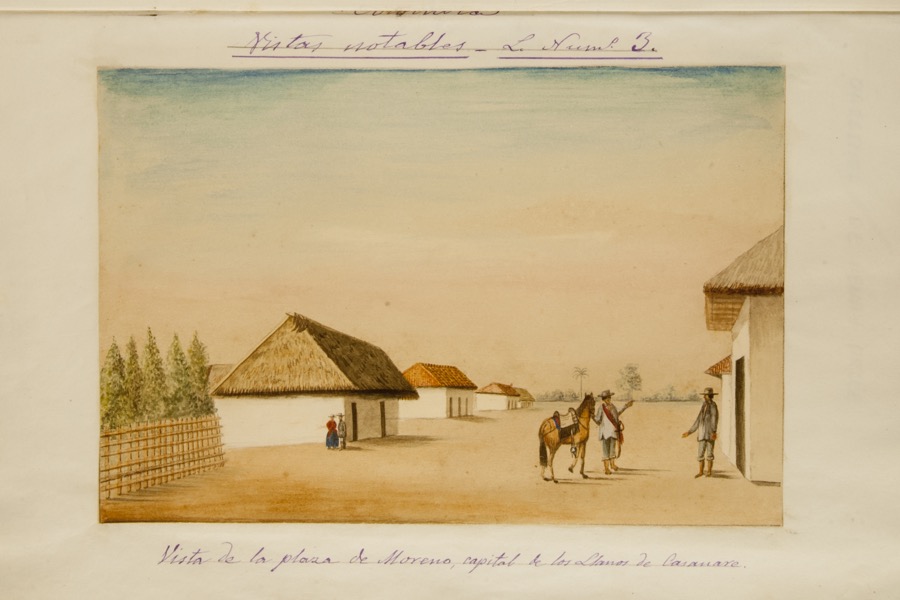 Vistas notables - L. Num.º 3.
Vista de la plaza de Moreno, capital de los Llanos de Casanare.